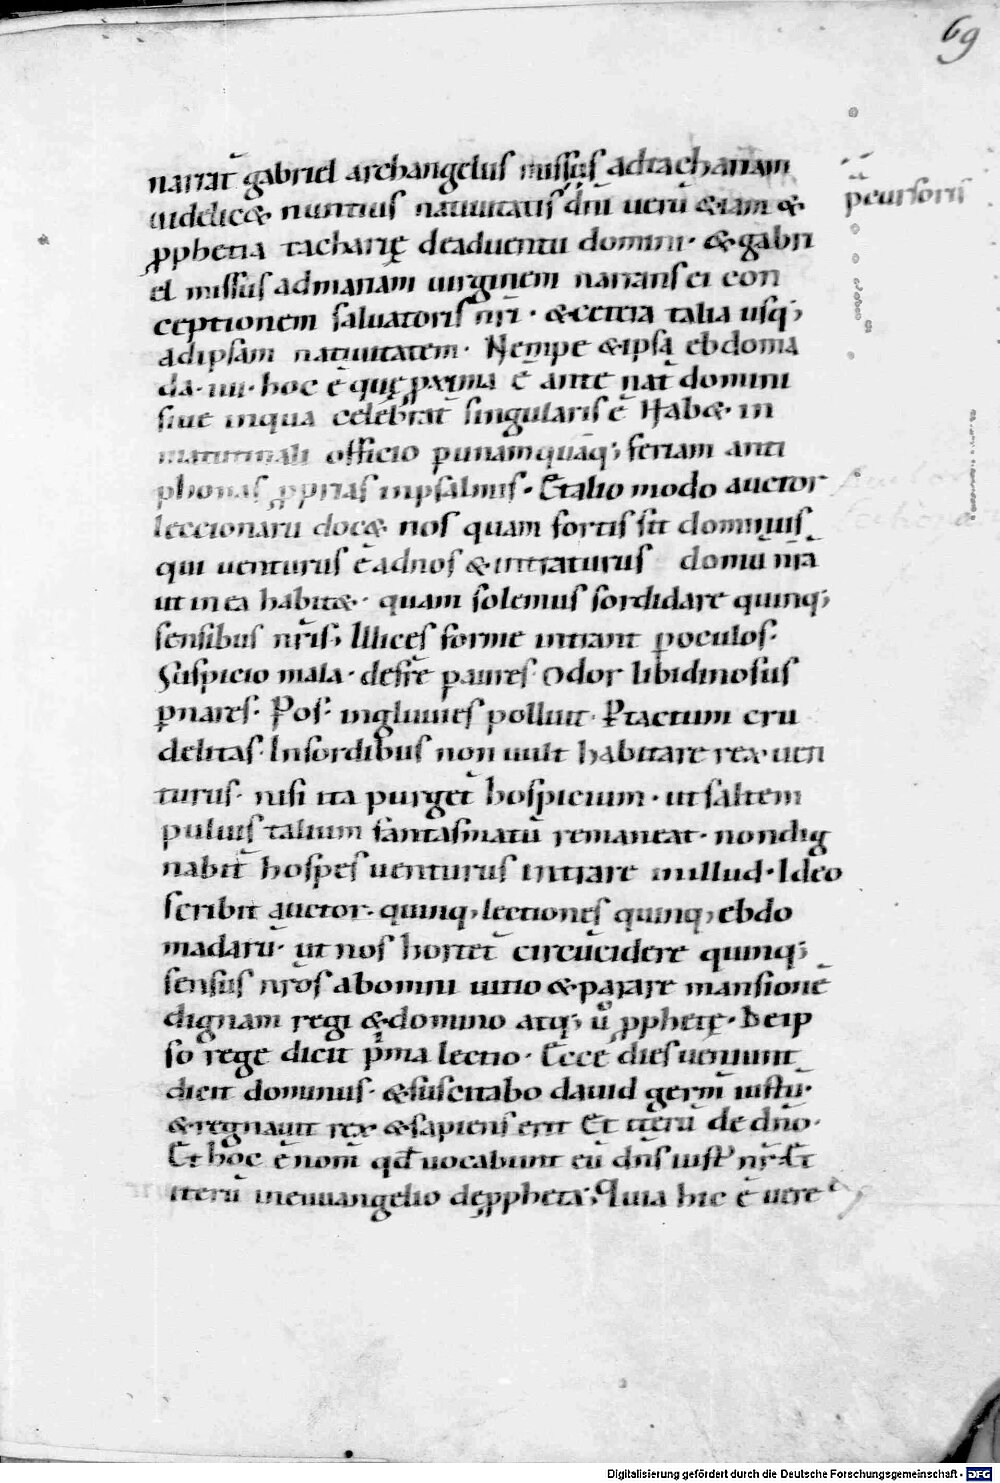 69
narrat̄ gabriel archangelus missus adzachariam
uidelic& nuntius natiuitatis dn̄i uerū &iam &
p̄cursoris
pphetia zacharię deaduentu domini· &gabri
el missus admariam uirginem narrans ei con
ceptionem saluatoris nr̄i · &cetera talia usq;
adipsam natiuitatem· Nempe &ipsa ebdoma
da· iiii· hoc ē quę pxima ē ante nat̄ domini
siue inqua celebrat̄ singularis ē Hab&· in
matutinali officio p unamquāq; feriam anti
phonas pprias inpsalmis· Etalio modo auctor
leccionarii doc& nos quam fortis sit dominus
qui uenturus ē adnos &intraturus domū nr̄ā
ut in ea habit&· quam solemus sordidare quinq;
sensibus nr̄is; Illices forme intrant p oculos·
Suspicio mala· desr̄e p aures· Odor libidinosus
p nares· P os· ingluuies polluit· P tactum cru
delitas· Insordibus non uult habitare rex uen
turus· nisi ita purget̄ hospicium· ut saltem
puluis talium fantasmatū remaneat· non dig
nabit̄ hospes uenturus intrare inillud· Ideo
scribit auctor· quinq; lectiones quinq; ebdo
madarū· ut nos hortet̄ circūcidere quinq;
sensus nr̄os abomni uitio &parare mansionē
dignam regi &domino atq; uͦ pphetę· De ip
so rege dicit pͥma lectio· Ecce dies ueniunt
dicit dominus· &suscitabo dauid germ̄ iustū·
&regnauit rex &sapiens erit Et iterū de dn̄o·
Et hoc ē nom̄ qd̄ uocabunt eū dn̄s iust' nr̄· Et
iterū ineuuangelio de ppheta; Quia hic ē uere
Digitalisierung gefördert durch die Deutsche Forschungsgemeinschaft - DFG